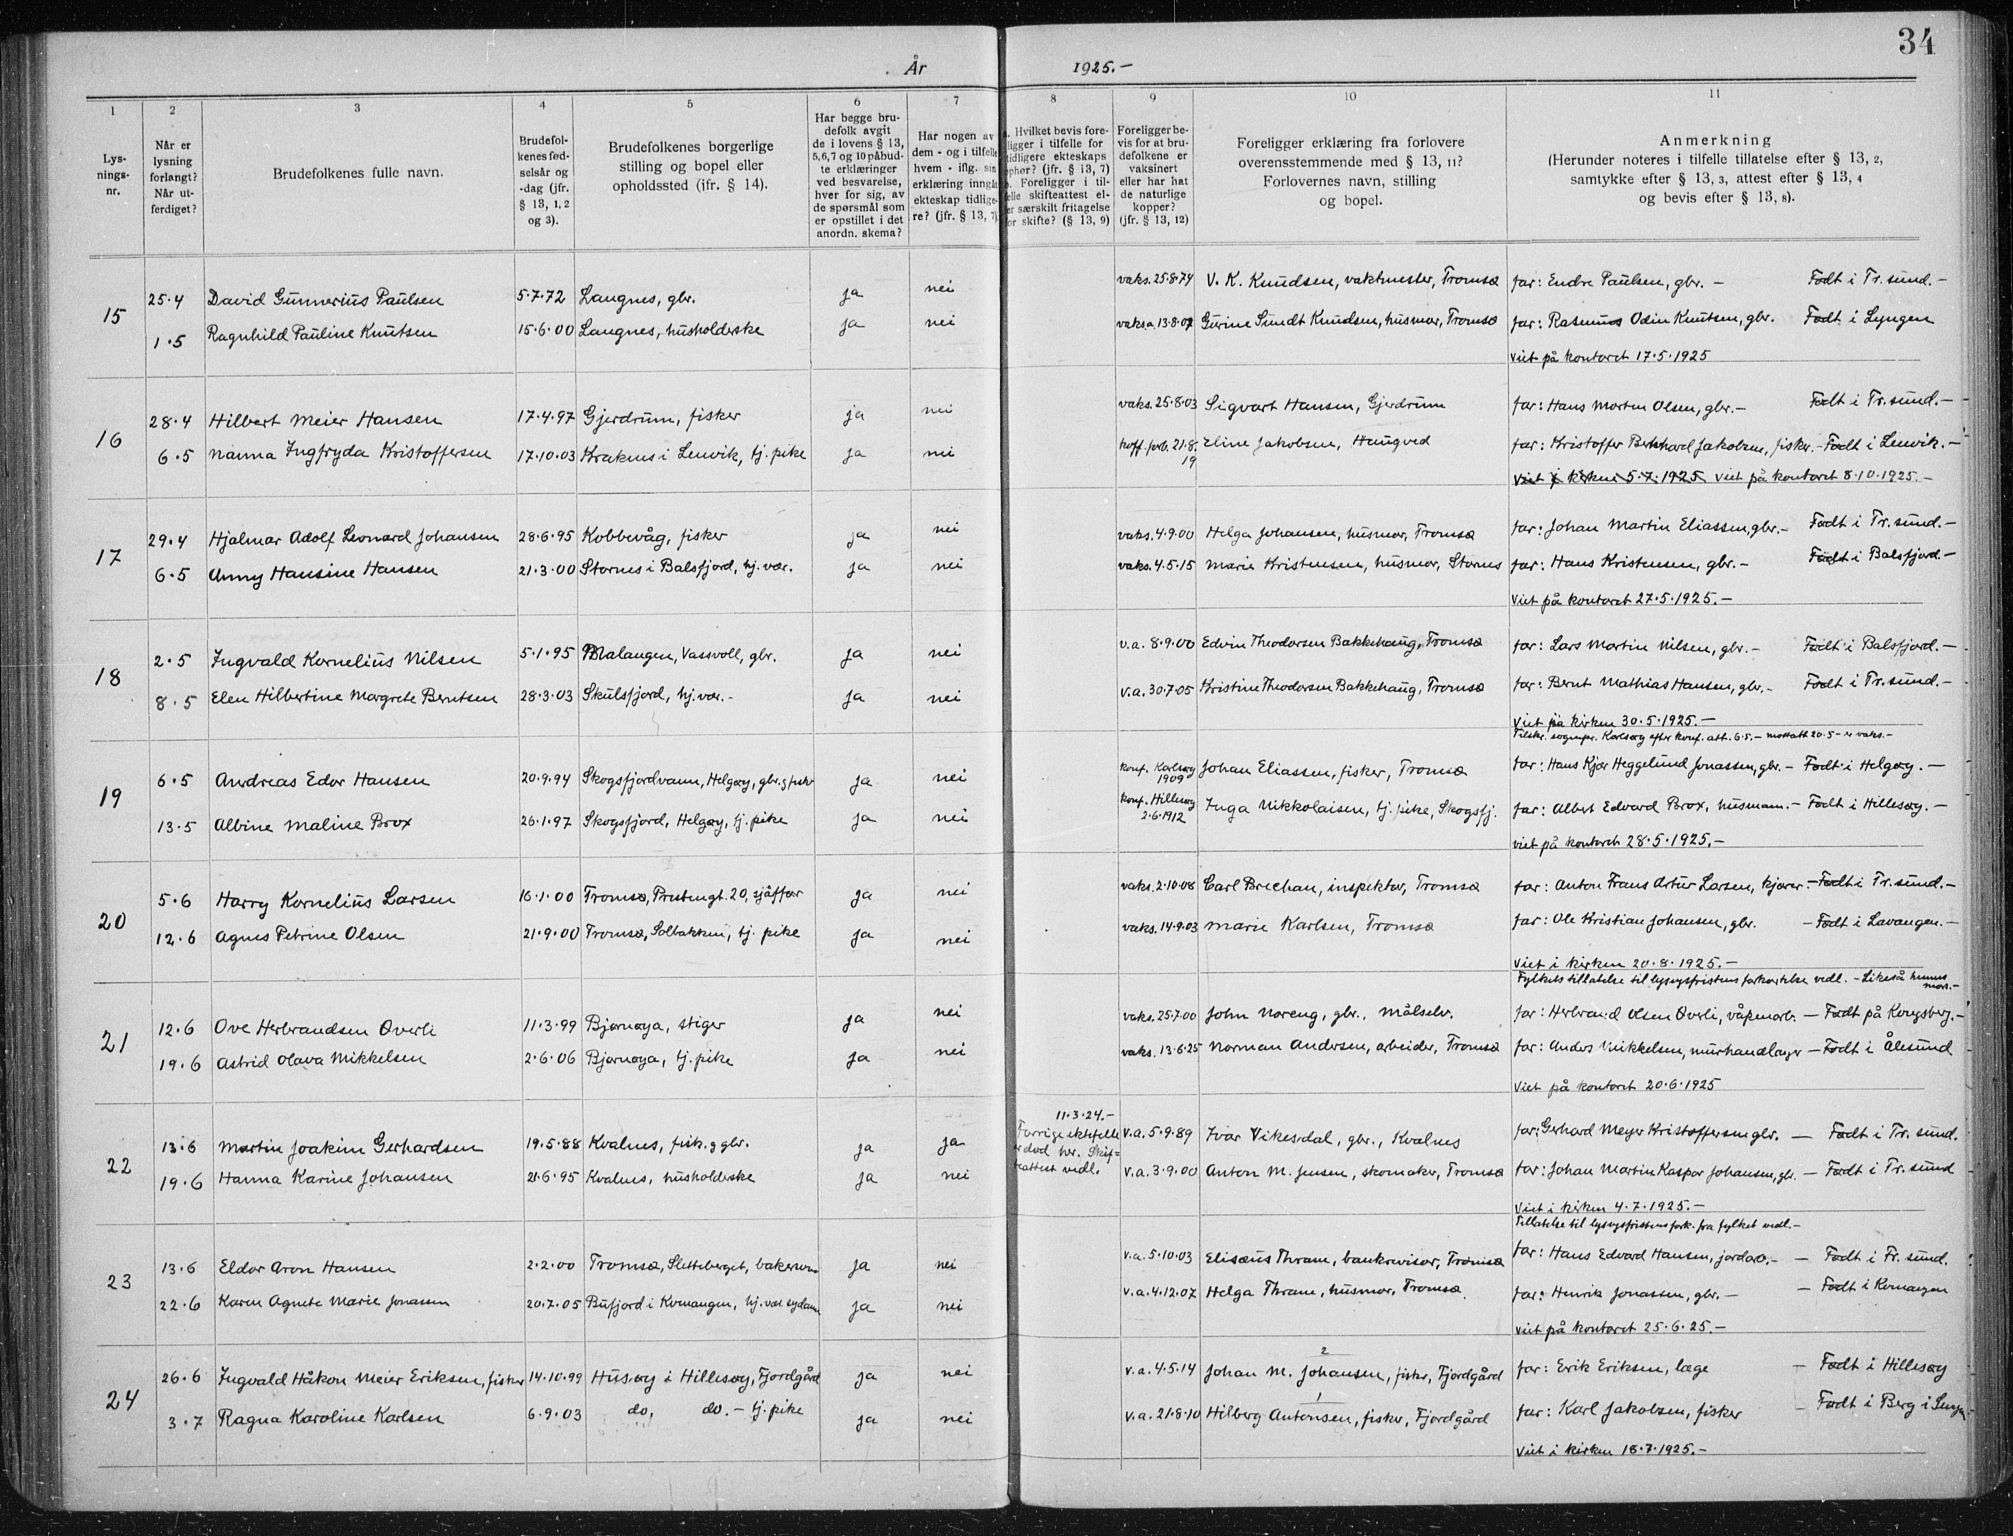 34
År 1925.-
1 2 3 4 5 6 7 8 9 10 11
Lys-
nings-
nr.
Når er
lysning
forlangt?
Når ut-
ferdiget?
Brudefolkenes fulle navn.
Brudefol-
kenes fød-
selsår og
-dag (jfr.
§ 13, 1, 2
og 3).
Brudefolkenes borgerlige
stilling og bopel eller
opholdssted (jfr. § 14).
Har begge bru-
defolk avgit
de i lovens § 13,
5,6,7 og 10 påbud-
te erklæringer
ved besvarelse,
hver for sig, av
de spørsmål som
er opstillet i det
anordn. skema?
Har nogen av
dem - og i tilfelle
hvem - iflg. sin
erklæring inngå
ekteskap tidlige-
re? (jfr. § 13, 7).
Hvilket bevis fore-
ligger i tilfelle for
tidligere ekteskaps
ophør? (jfr. § 13, 7)
Foreligger i til-
felle skifteattest el-
ler særskilt fritagelse
for skifte? (§ 13, 9)
Foreligger be-
vis for at bru-
defolkene er
vaksinert
eller har hat
de naturlige
kopper?
(jfr. § 13, 12)
Foreligger erklæring fra forlovere
overensstemmende med § 13, 11?
Forlovernes navn, stilling
og bopel.
Anmerkning
(Herunder noteres i tilfelle tillatelse efter § 13, 2,
samtykke efter § 13, 3, attest efter § 13, 4
og bevis efter § 13, 8).
15 25.4 David Gunnerius Paulsen 5.7.72 Langnes, gbr. ja nei vaks. 25.8.74 V. K. Knudsen, vaktmester, Tromsø far: Endre Paulsen, gbr. - Født i Tr.sund.-
1.5 Ragnhild Pauline Knutsen 15.6.00 Langnes, husholderske ja nei vaks. 13.8.07 Gurine Sundt Knudsen, husmor, Tromsø far: Rasmus Odin Knutsen, gbr. Født i Lyngen
Viet på kontoret 17.5.1925
16 28.4 Hilbert Meier Hansen 17.4.97 Gjerdrum, fisker ja nei vaks. 25.8.03 Sigvart Hansen, Gjerdrum far: Hans Morten Olsen, gbr.- Født i Tr.sund.-
6.5 Nanna Ingfryda Kristoffersen 17.10.03 Kraknes i Lenvik, tj. pike ja nei koff. forb. 21.8.19 Eline Jakobsen, Haugved far: Kristoffer Bernhard Jakobsen, fisker.- Født i Lenvik.-
Viet i kirken 5.7.1925 Viet på kontoret 8.10.1925.-
17 29.4 Hjalmar Adolf Leonard Johansen 28.6.95 Kobbevåg, fisker ja nei vaks. 4.9.00 Helga Johansen, husmor, Tromsø far: Johan Martin Eliassen, gbr.- Født i Tr.sund.-
6.5 Anny Hansine Hansen 21.3.00 Stornes i Balsfjord, hj. vær. ja nei vaks. 4.5.15 Marie Kristensen, husmor, Stornes far: Hans Kristensen, gbr.- Født i Balsfjord.-
Viet på kontoret 27.5.1925.-
18 2.5 Ingvald Kornelius Nilsen 5.1.95 Malangen, Vassvoll, gbr. ja nei v.a. 8.9.00 Edvin Theodorsen Bakkehaug, Tromsø far: Lars Martin Nilsen, gbr.- Født i Balsfjord.-
8.5 Elen Hilbertine Margrete Berntsen 28.3.03 Skulsfjord, hj. vær.- ja nei v.a. 30.7.05 Kristine Theodorsen Bakkehaug, Tromsø far: Bernt Mathias Hansen, gbr.- Født i Tr.sund.-
Viet på kirken 30.5.1925.-
Tilskr. sognepr. Karlsøy efter konf. att. 6.5.- mottatt 20.5 - er vaks.-
19 6.5 Andreas Edor Hansen 20.9.94 Skogsfjordvann, Helgøy, gbr. g fisker ja nei konf. Karlsøy 1909 Johan Eliassen, fisker, Tromsø far: Hans Kjær Heggelund Jonassen, gbr.- Født i Helgøy.-
13.5 Albine Maline Brox 26.1.97 Skogsfjord, Helgøy, tj. pike ja nei konf. Hillesøy 2.6.1912 Inga Nikkolaisen, tj. pike, Skogsfj. far: Albert Edvard Brox, husmann.- Født i Hillesøy.-
viet på kontoret 28.5.1925.-
20 5.6 Harry Kornelius Larsen 16.1.00 Tromsø, Prestengt. 20, sjåffør ja nei vaks. 2.10.08 Carl Brechan, inspektør, Tromsø far: Anton Frans Artur Larsen, kjører.- Født i Tr.sund.-
12.6 Agnes Petrine Olsen 21.9.00 Tromsø, Solbakken, tj. pike ja nei vaks. 14.9.03 Marie Karlsen, Tromsø far: Ole Kristian Johansen, gbr. - Født i Lavangen.-
Viet i kirken 20.8.1925.-
Fylkets tillatelse til lysngsfristens forkortelse vedl. - Likeså hennes mors.-
21 12.6 Ove Herbrandsen Øverli 11.3.99 Bjørnøya, stiger ja nei vaks. 25.7.00 John Noreng, gbr., Målselv. far: Herbrand Olsen Øverli, våpenarb. - Født på Kongsberg.-
19.6 Astrid Olava Mikkelsen 2.6.06 Bjørnøya, tj. pike ja nei vaks. 13.6.25 Norman Andersen, arbeider, Tromsø far: Anders Mikkelsen, murhandlager - Født i Ålesund
Viet på kontoret 20.6.1925
22 13.6 Martin Joakim Gerhardsen 19.5.88 Kvalnes, fisk. g gbr. ja ja 11.3.24.- Forrige ektefelle er død her. Skifteattest vedl. v.a. 5.9.89 Ivar Vikesdal, gbr., Kvalnes far: Gerhard Meyer Kristoffersen gbr. - Født i Tr. sund.
19.6 Hanna Karine Johansen 21.6.95 Kvalnes, husholderske ja nei v.a. 3.9.00 Anton M. Jensen, skomaker, Tromsø far: Johan Martin Kaspar Johansen, gbr. - Født i Tr. sund
Viet i kirken 4.7.1925.-
Tillatelse til lysngsfristens fork. fra fylket vedl.-
23 13.6 Eldor Aron Hansen 2.2.00 Tromsø, Sletteberget, bakersvenn ja nei v.a. 5.10.03 Elisæus Thrane, bankrevisor, Tromsø far: Hans Edvard Hansen, jordarb.- - Født i Tr. sund.
22.6 Karen Agnete Marie Jonassen 20.7.05 Bufjord i Kvænangen, hj. vær. sydame ja nei v.a. 4.12.07 Helga Thrane, husmor, Tromsø. far: Henrik Jonassen, gbr.- - Født i Kvænangen
viet på kontoret 25.6.25.-
24 26.6 Ingvald Håkon Meier Eriksen, fisker 14.10.99 Husøy i Hillesøy, Fjordgård ja nei v.a. 4.5.14 Johan M. Johansen, fisker, Fjordgård far: Erik Eriksen, læge - Født i Hillesøy
3.7 Ragna Karoline Karlsen 6.9.03 do, do.- tj. pike ja nei v.a. 21.8.10 Hilberg Antonsen, fisker, Fjordgård far: Karl Jakobsen, fisker - Født i Berg i Senja
Viet i kirken 18.7.1925.-